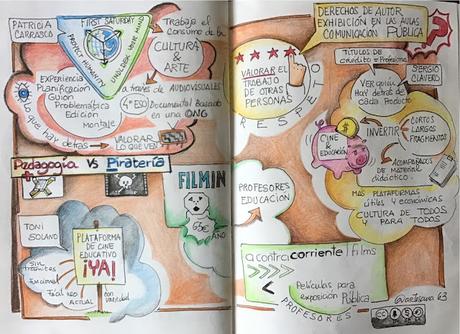 PATRICIA
CARRASCO
FIRST SATURDAY
PROJECT HUMANITY
UNBLOCK YOUR MIND
Trabaja el
Consumo de
CULTURA
& ARTE
a través de AUDIOVISUALES
4º ESO
Documental basado
en una ONG
Experiencia
Planificación
Guion
Problemática
Edición
Montaje
qué hay detrás
VALORAR
LO QUE VEN
Pedagogía VS Piratería
FILMIN
AÑO
TONI
SOLANO
PLATAFORMA
DE CINE
EDUCATIVO
¡YA!
sin
trámites
funcional
Fácil uso
ACTUAL
con variedad
DERECHOS DE AUTOR
EXHIBICIÓN EN LAS AULAS
COMUNICACIÓN PÚBLICA
VALORAR EL
TRABAJO
DE OTRAS
PERSONAS
RESPETO
TÍTULOS DE
crédito = Profesores
SERGIO
CLAVERO
Ver quién
hay detrás de
cada Producto
CINE
&
EDUCACIÓN
INVERTIR
CORTOS
LARGOS
FRAGMENTOS
ACOMPAÑADOS
DE MATERIAL
didáctico
MÁS PLATAFORMAS
útiles y económicas
CULTURA DE TODOS
Y PARA TODOS
PROFESORES
EDUCACIÓN
a contracorriente films
Películas para
exposición Pública
PROFESORES